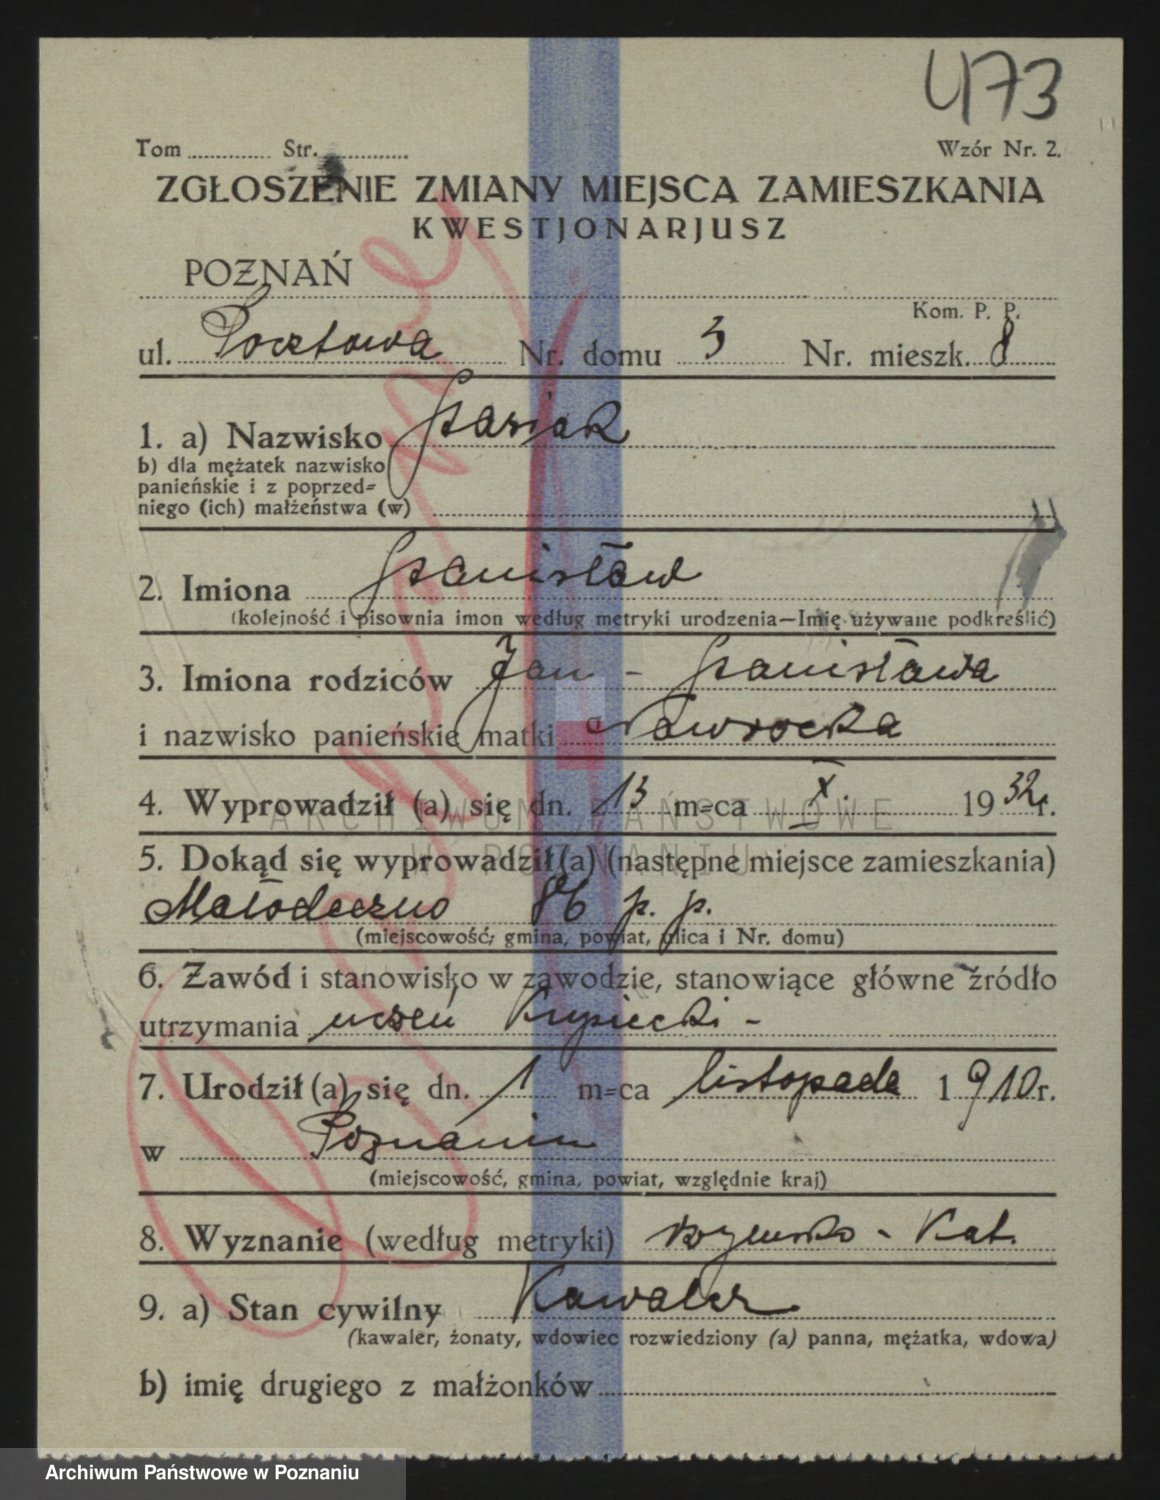 473
Tom ............ Str. ............ Wzór Nr. 2.
ZGŁOSZENIE ZMIANY MIEJSCA ZAMIESZKANIA
KWESTJONARJUSZ
POZNAŃ
Kom. P. P.
ul. Pocztowa Nr. domu 3 Nr. mieszk. 8
1. a) Nazwisko Stasiak
b) dla mężatek nazwisko
panieńskie i z poprzed=
niego (ich) małżeństwa (w)
2. Imiona Stanisław
(kolejność i pisownia imon według metryki urodzenia—Imię używane podkreślić)
3. Imiona rodziców Jan - Stanisława
i nazwisko panieńskie matki Nawrocka
4. Wyprowadził (a) się dn. 13 m=ca X. 1932 r.
ARCHIWUM PAŃSTWOWE
W POZNANIU
5. Dokąd się wyprowadził(a) (następne miejsce zamieszkania)
Mołodeczno 86 p. p.
(miejscowość, gmina, powiat, ulica i Nr. domu)
6. Zawód i stanowisko w zawodzie, stanowiące główne źródło
utrzymania uczeń Kupiecki -
7. Urodził (a) się dn. 1 m=ca listopada 1910 r.
w Poznaniu
(miejscowość, gmina, powiat, względnie kraj)
8. Wyznanie (według metryki) rzymsko - Kat.
9. a) Stan cywilny Kawaler
(kawaler, żonaty, wdowiec rozwiedziony (a) panna, mężatka, wdowa)
b) imię drugiego z małżonków
Archiwum Państwowe w Poznaniu